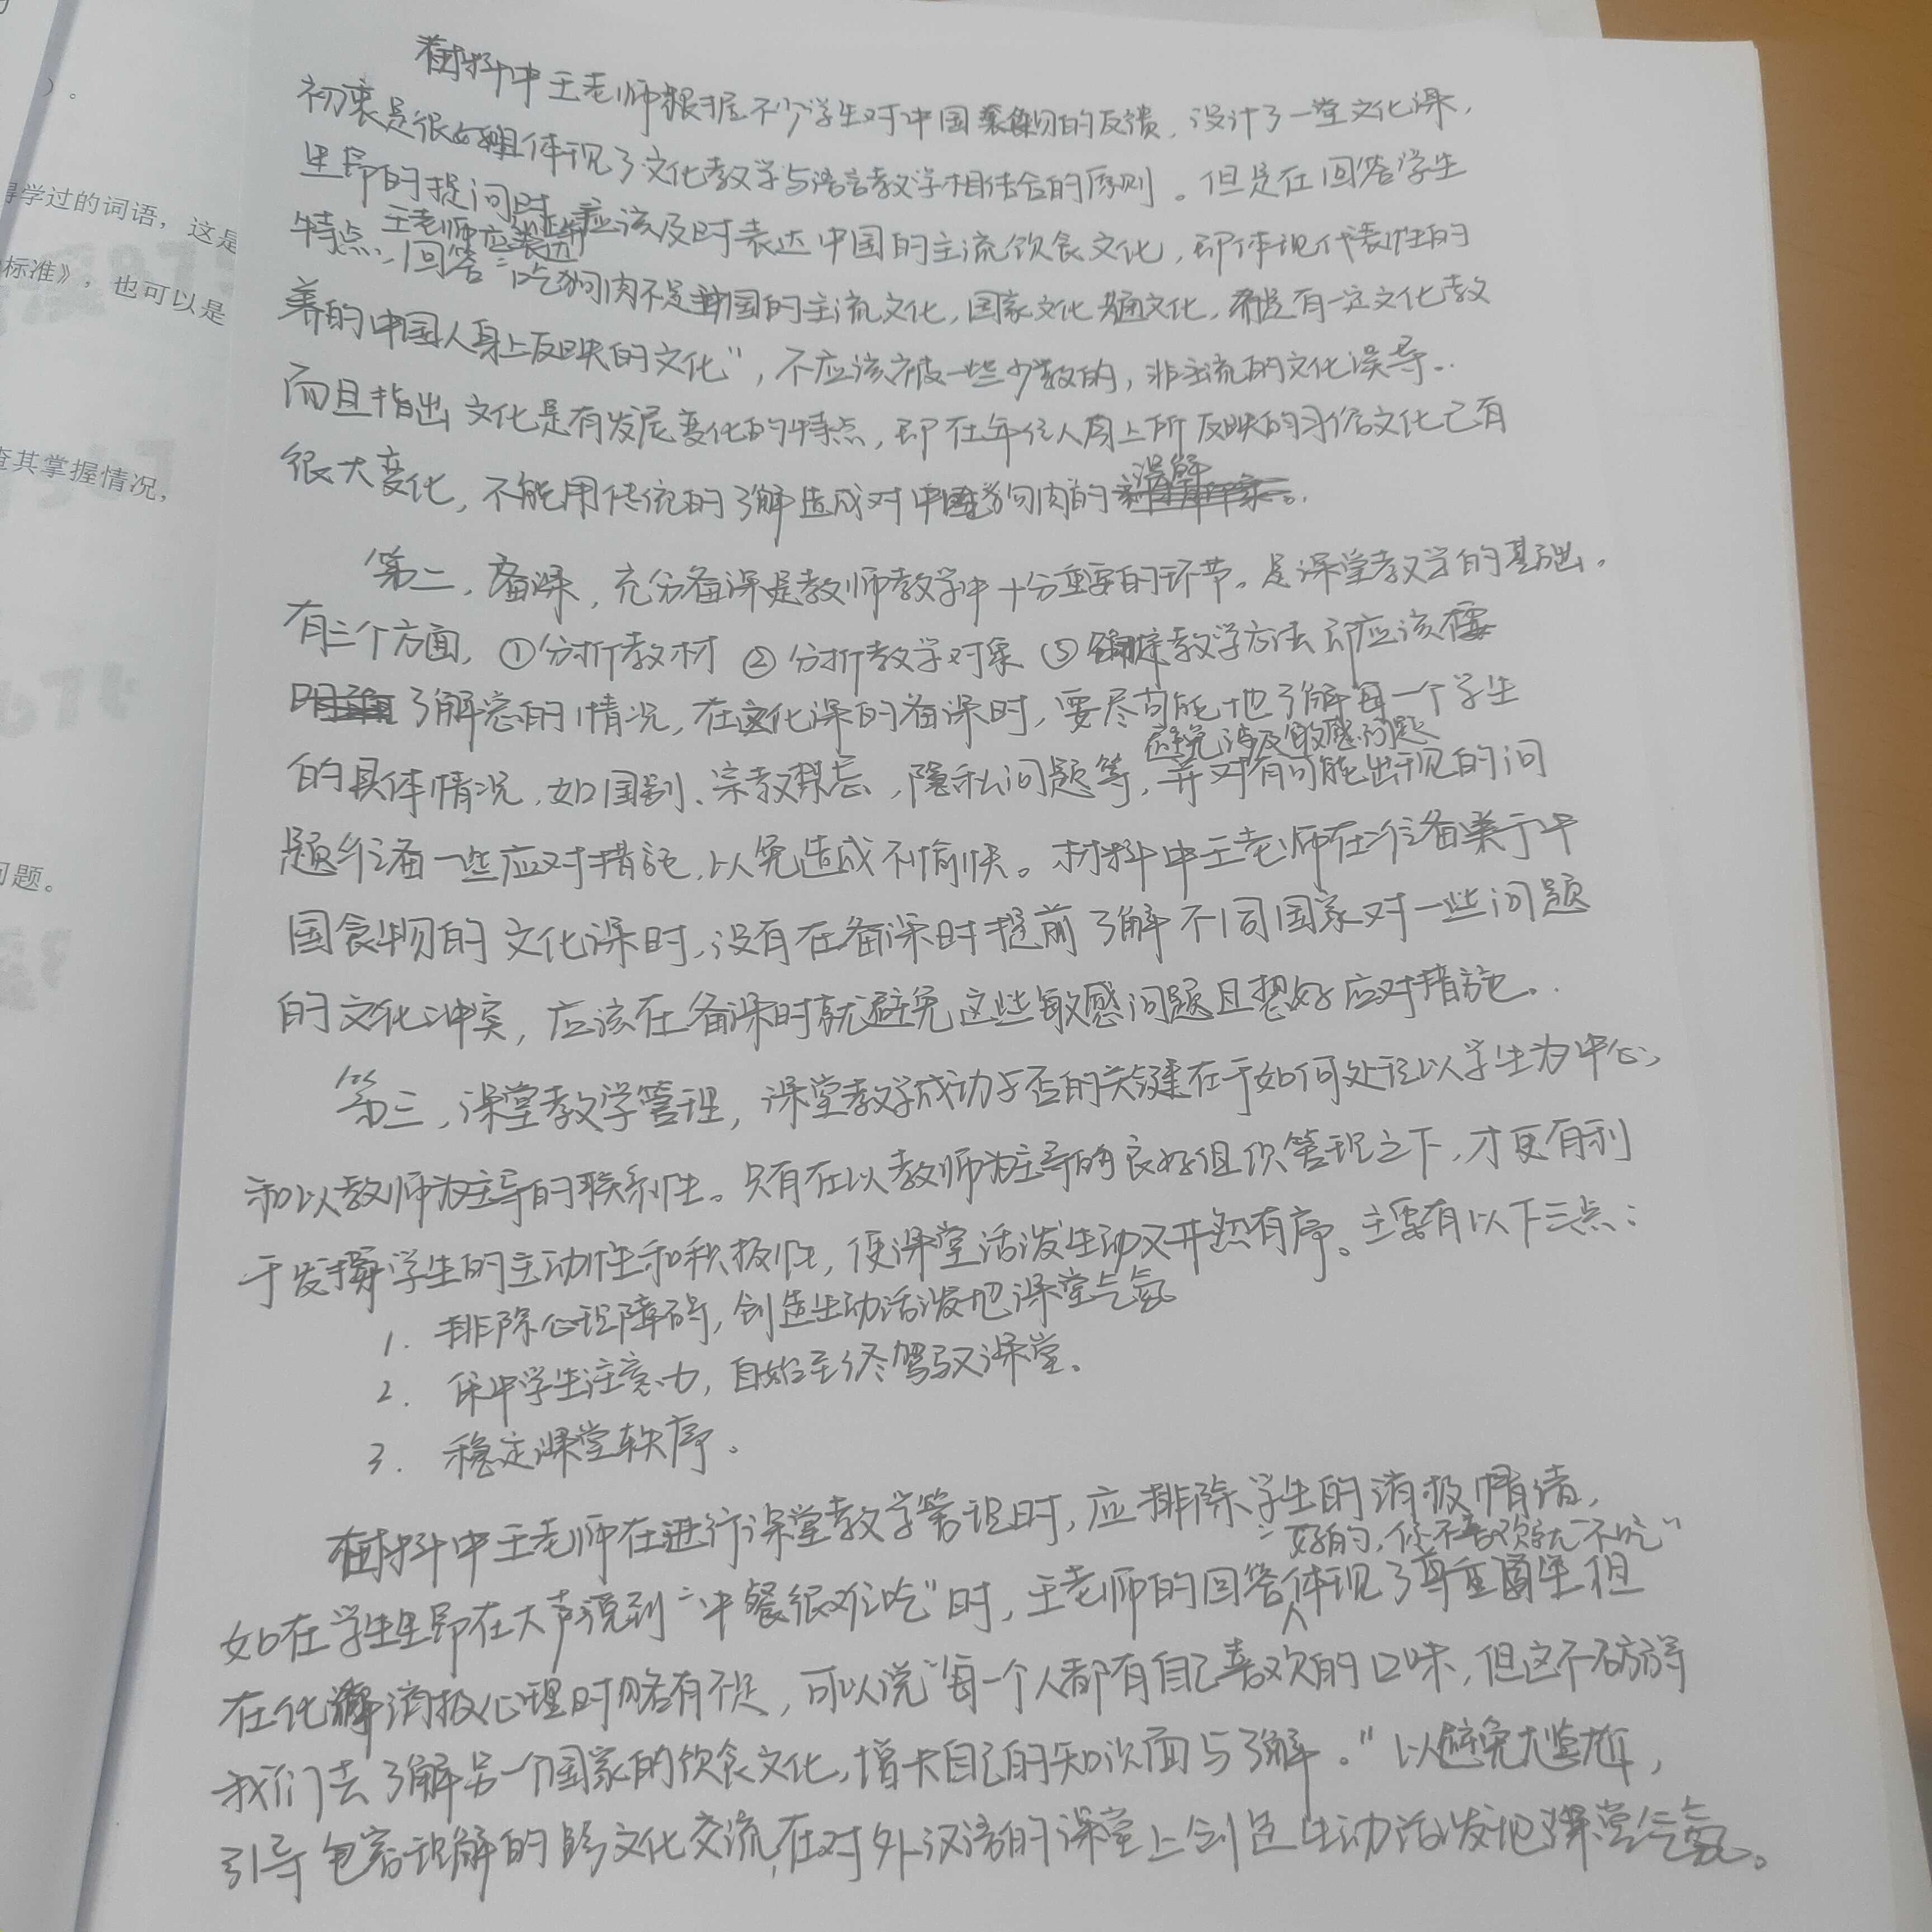 ）。
得学过的词语，这是
标准》，也可以是
查其掌握情况，
问题。
材料中王老师根据不少学生对中国食物的反馈，设计了一堂文化课，
初衷是很好且体现了文化教学与语言教学相结合的原则。但是在回答学生
里昂的提问时，应该及时表达中国的主流饮食文化，即体现代表性的
特点，王老师应回答“吃狗肉不是中国的主流文化，国家文化普通文化，是有一定文化教
养的中国人身上反映的文化”，不应该被一些少数的，非主流的文化误导。
而且指出文化是有发展变化的特点，即在年轻人身上所反映的习俗文化已有
很大变化，不能用传统的了解造成对中国吃狗肉的误解。
第二，备课，充分备课是教师教学中十分重要的环节。是课堂教学的基础。
有三个方面，①分析教材 ②分析教学对象 ③教学方法 即应该
了解您的情况，在文化课的备课时，要尽可能地了解每一个学生
的具体情况，如国别、宗教禁忌，隐私问题等，避免涉及敏感问题 并对有可能出现的问
题准备一些应对措施，以免造成不愉快。材料中王老师在准备关于中
国食物的文化课时，没有在备课时提前了解不同国家对一些问题
的文化冲突，应该在备课时就避免这些敏感问题且想好应对措施。
第三，课堂教学管理，课堂教学成功与否的关键在于如何处理以学生为中心
和以教师为主导的联系性。只有在以教师为主导的良好组织管理之下，才更有利
于发挥学生的主动性和积极性，使课堂活泼生动又井然有序。主要有以下三点：
1. 排除心理障碍，创造生动活泼地课堂气氛
2. 集中学生注意力，自始至终驾驭课堂。
3. 稳定课堂秩序。
材料中王老师在进行课堂教学管理时，应排除学生的消极情绪，
如在学生里昂在大声说到“中餐很难吃”时，王老师的回答“好的，你不喜欢就不吃”体现了尊重 但
在化解消极心理时略有不足，可以说“每一个人都有自己喜欢的口味，但这不妨碍
我们去了解另一个国家的饮食文化，增长自己的知识面与了解。”以避免尴尬，
引导包容理解的跨文化交流，在对外汉语的课堂上创造生动活泼地课堂气氛。